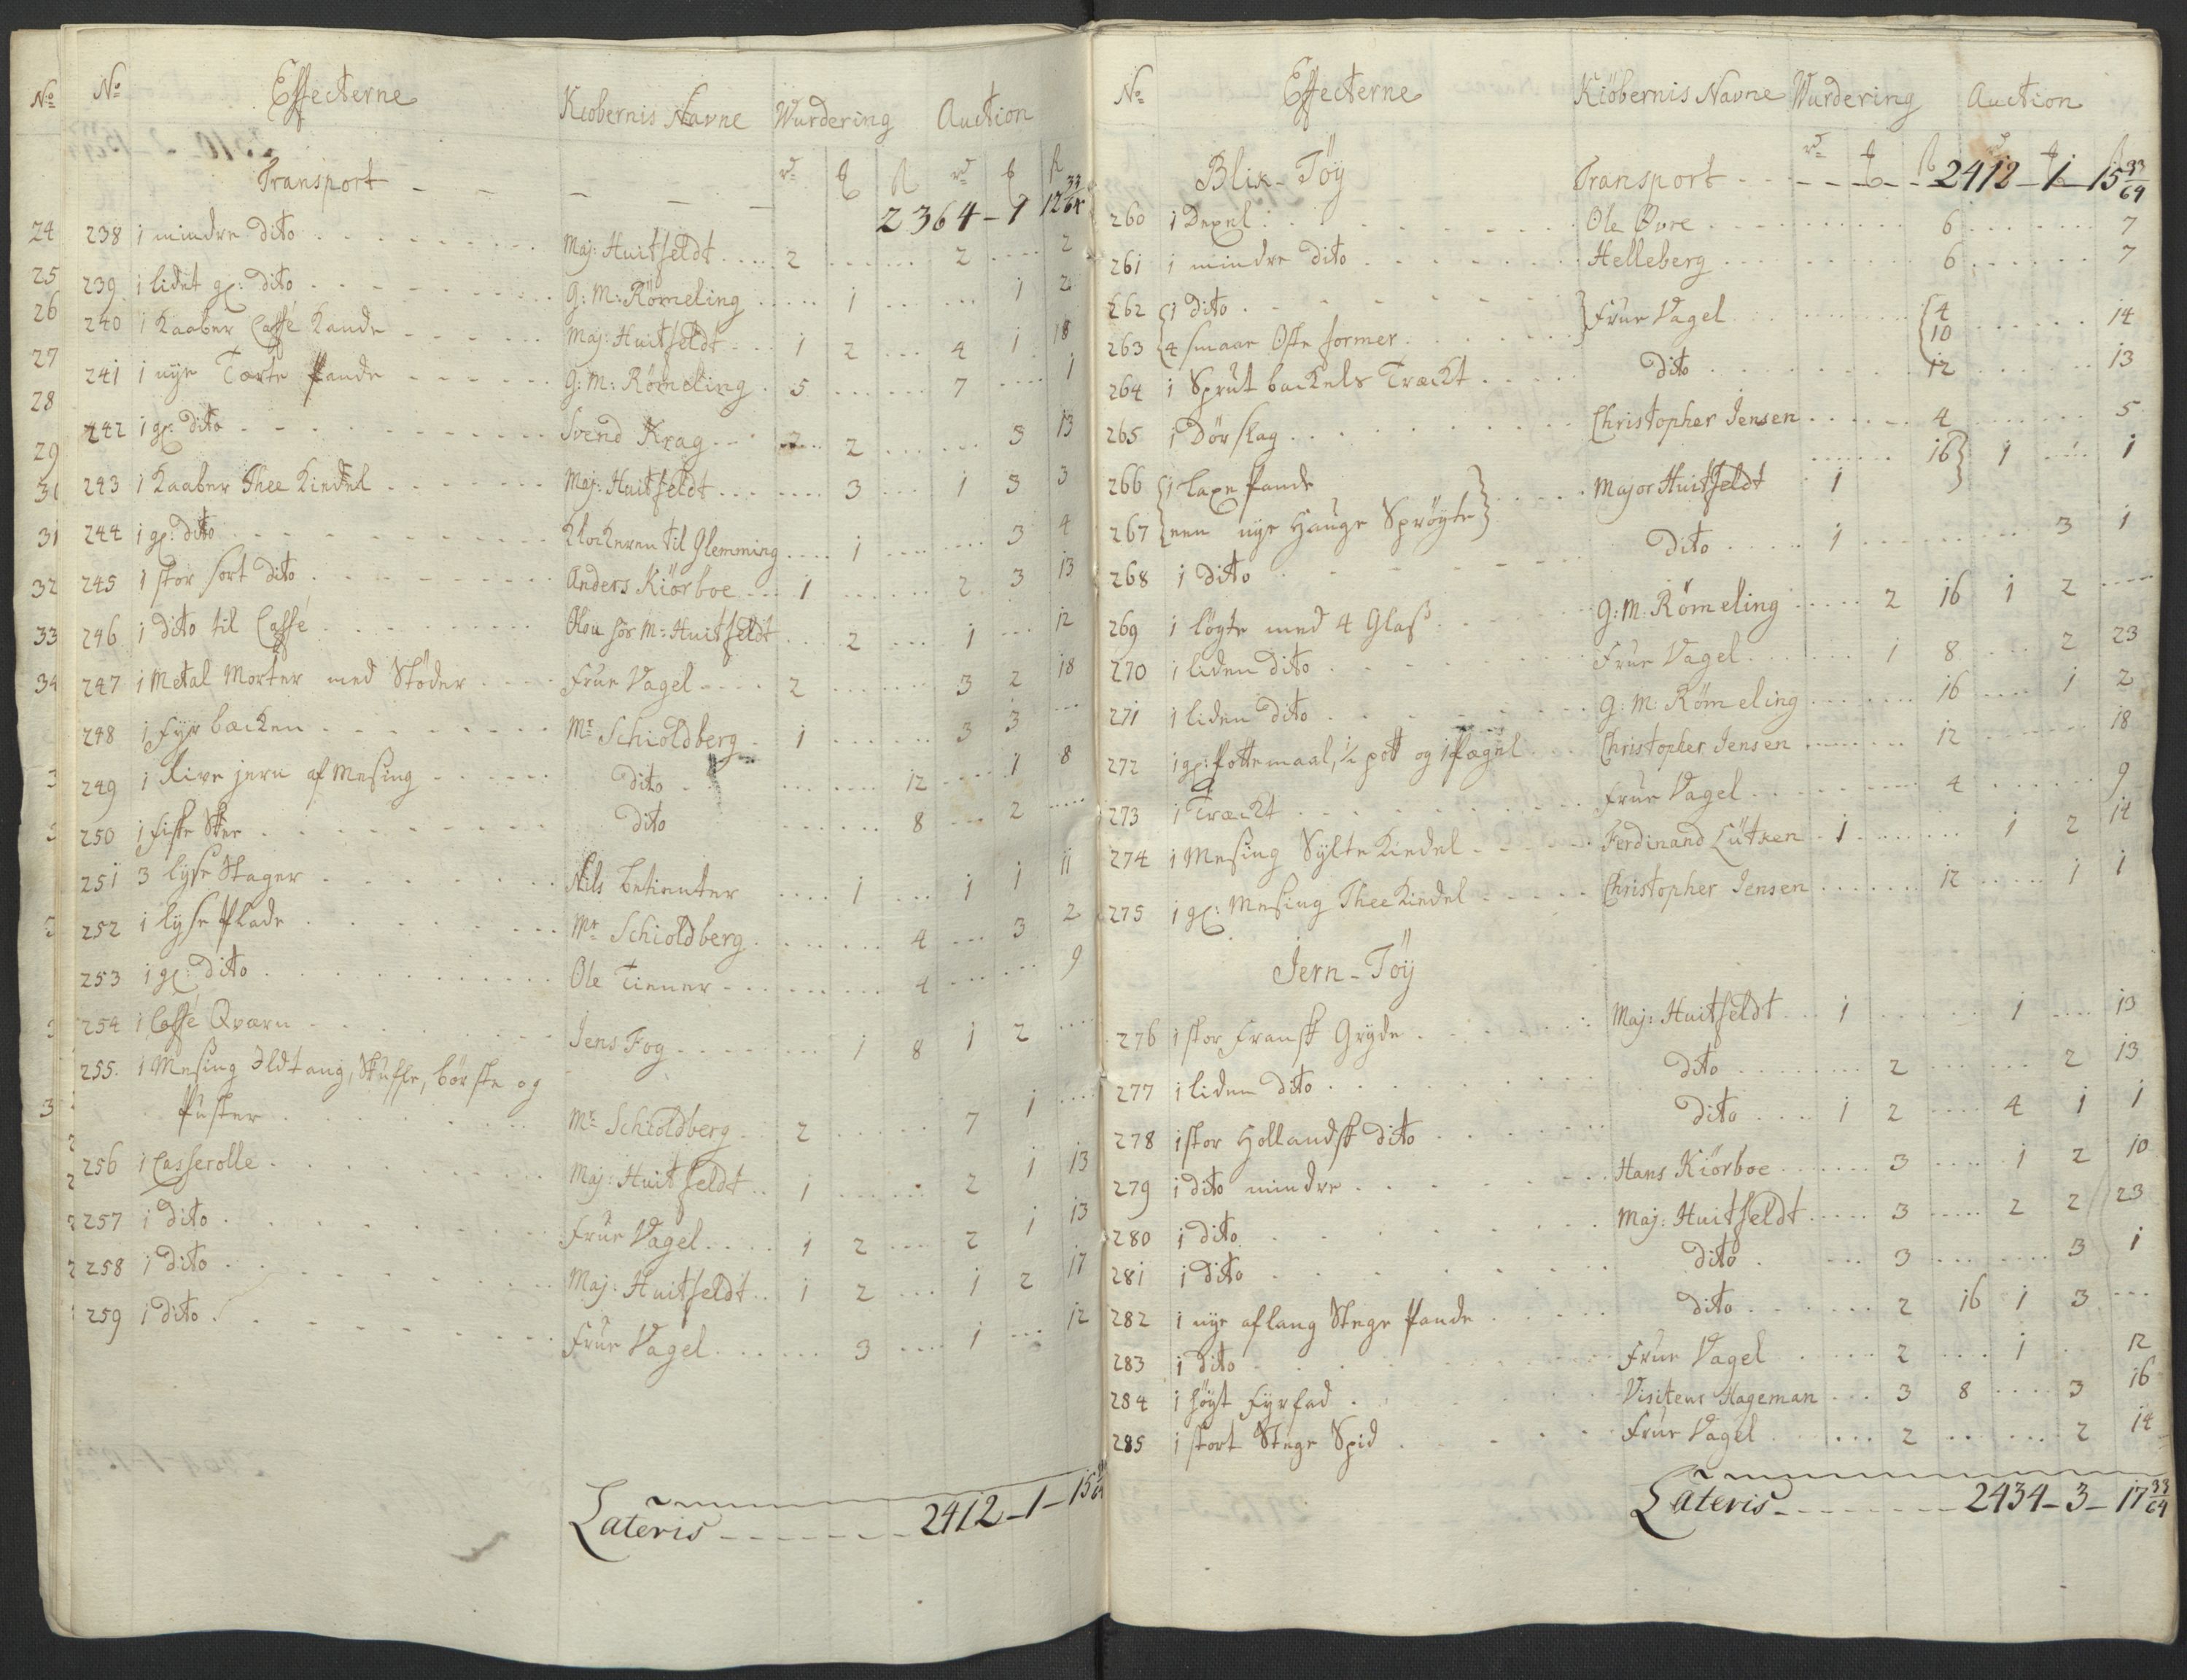 No
24
25
26
27
28
29
30
31
32
33
34
No Effecterne Kiobernis Navne Wurdering Auction
Transport - - - - 2364 - 1 12 33/64
238 1 mindre dito Maj: Huitfeldt 2 2 2
239 1 lidet gl: dito G: M: Römeling 1 1 2
240 1 Kaaber Caffé Kande Maj: Huitfeldt 1 2 4 1 18
241 1 nye Tærte Pande G: M: Römeling 5 7 1
242 1 gl: dito Svend Krag 2 3 13
243 1 Kaaber Thee Kiedel Maj: Huitfeldt 3 1 3 3
244 1 gl: dito Klockeren til Glemming 1 3 4
245 1 stor sort dito Anders Kiörboe 1 2 3 13
246 1 dito til Caffé Olou för M: Huitfeldt 2 1 12
247 1 Metal Morter med Stöder Frue Vagel 2 3 2 18
248 1 Fyrbæcken Mr Schioldberg 1 3 3
249 1 Rive jern af Mesing dito 12 1 8
250 1 fiske Skee dito 8 2
251 3 lyse Stager Nils betienter 1 1 1 11
252 1 lyse Plade Mr Schioldberg 4 3 2
253 1 gl: dito Ole Tiener 4 9
254 1 Caffé Qværn Jens Fog 1 8 1 2
255. 1 Mesing Ildtang, Skuffe, börste og
Puster Mr Schioldberg 2 7 1
256 1 Casserolle Maj: Huitfeldt 1 2 1 13
257 1 dito Frue Vagel 1 2 2 1 13
258 1 dito Maj: Huitfeldt 1 2 1 2 17
259 1 dito Frue Vagel 3 1 12
Lateris 2412 - 1 - 15 33/64
No Effecterne Kiöbernis Navne Wurdering Auction
Blix-Töy Transport 2412 - 1 - 15 33/64
260 1 Dexel Ole Övre 6 7
261 1 mindre dito Helleberg 6 7
262 1 dito Frue Vagel 4 14
263 4 smaae Oste former 10
264 1 Sprut backels Træckt dito 12 13
265 1 Dörslag Christopher Jensen 4 5
266 1 laxe Pande Major Huitfeldt 16 1 1
267 een nye Hauge Spröyte 1
268 1 dito dito 1 3 1
269 1 löyte med 4 Glass G: M: Römeling 2 16 1 2
270 1 liden dito Frue Vagel 1 8 2 23
271 1 liden dito G: M: Römeling 16 1 2
272 1 gl: Pottemaal, ½ pott og 1 Pægel Christopher Jensen 12 18
273 1 Træckt Frue Vagel 4 9
274 1 Mesing Sylte Kiedel Ferdinand Lütken 1 1 2 14
275 1 gl: Mesing Thee Kiedel Christopher Jensen 12 1 1
Jern-Töy
276 1 stor Fransk Gryde Maj: Huitfeldt 1 1 13
277 1 liden dito dito 2 2 13
278 1 stor Hollandsk dito dito 1 2 4 1 1
279 1 dito mindre Hans Kiörboe 3 1 2 10
280 1 dito Maj: Huitfeldt 3 2 2 23
281 1 dito dito 3 3 1
282 1 nye aflang Stege Pande dito 2 16 1 3
283 1 dito Frue Vagel 2 1 12
284 1 höyt Fyrfad Visiteur Hageman 3 8 3 16
285 1 stort Stege Spid Frue Vagel 2 2 14
Lateris 2434 - 3 - 17 33/64